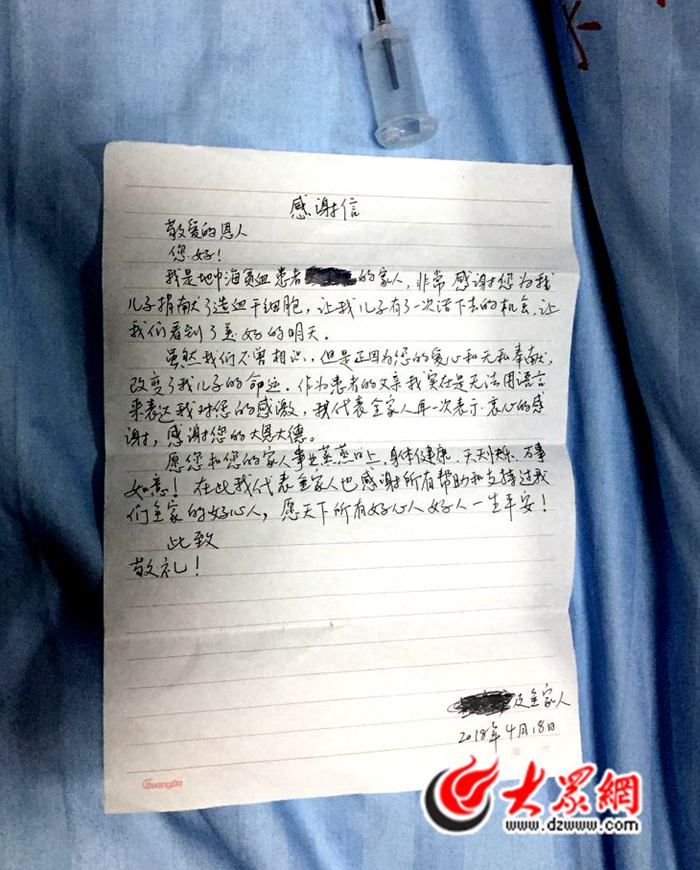 感谢信
敬爱的恩人
您好！
我是地中海贫血患者 的家人，非常感谢您为我
儿子捐献了造血干细胞，让我儿子有了一次活下去的机会，让
我们看到了美好的明天。
虽然我们不曾相识，但是正因为您的爱心和无私奉献，
改变了我儿子的命运。作为患者的父亲我实在是无法用语言
来表达我对您的感激，我代表全家人再一次表示衷心的感
谢，感谢您的大恩大德。
愿您和您的家人事业蒸蒸日上、身体健康、天天快乐、万事
如意！在此我代表全家人也感谢所有帮助和支持过我
们全家的好心人，愿天下所有好心人好人一生平安！
此致
敬礼！
及全家人
2018年4月18日
Guangbo
大众網
www.dzwww.com